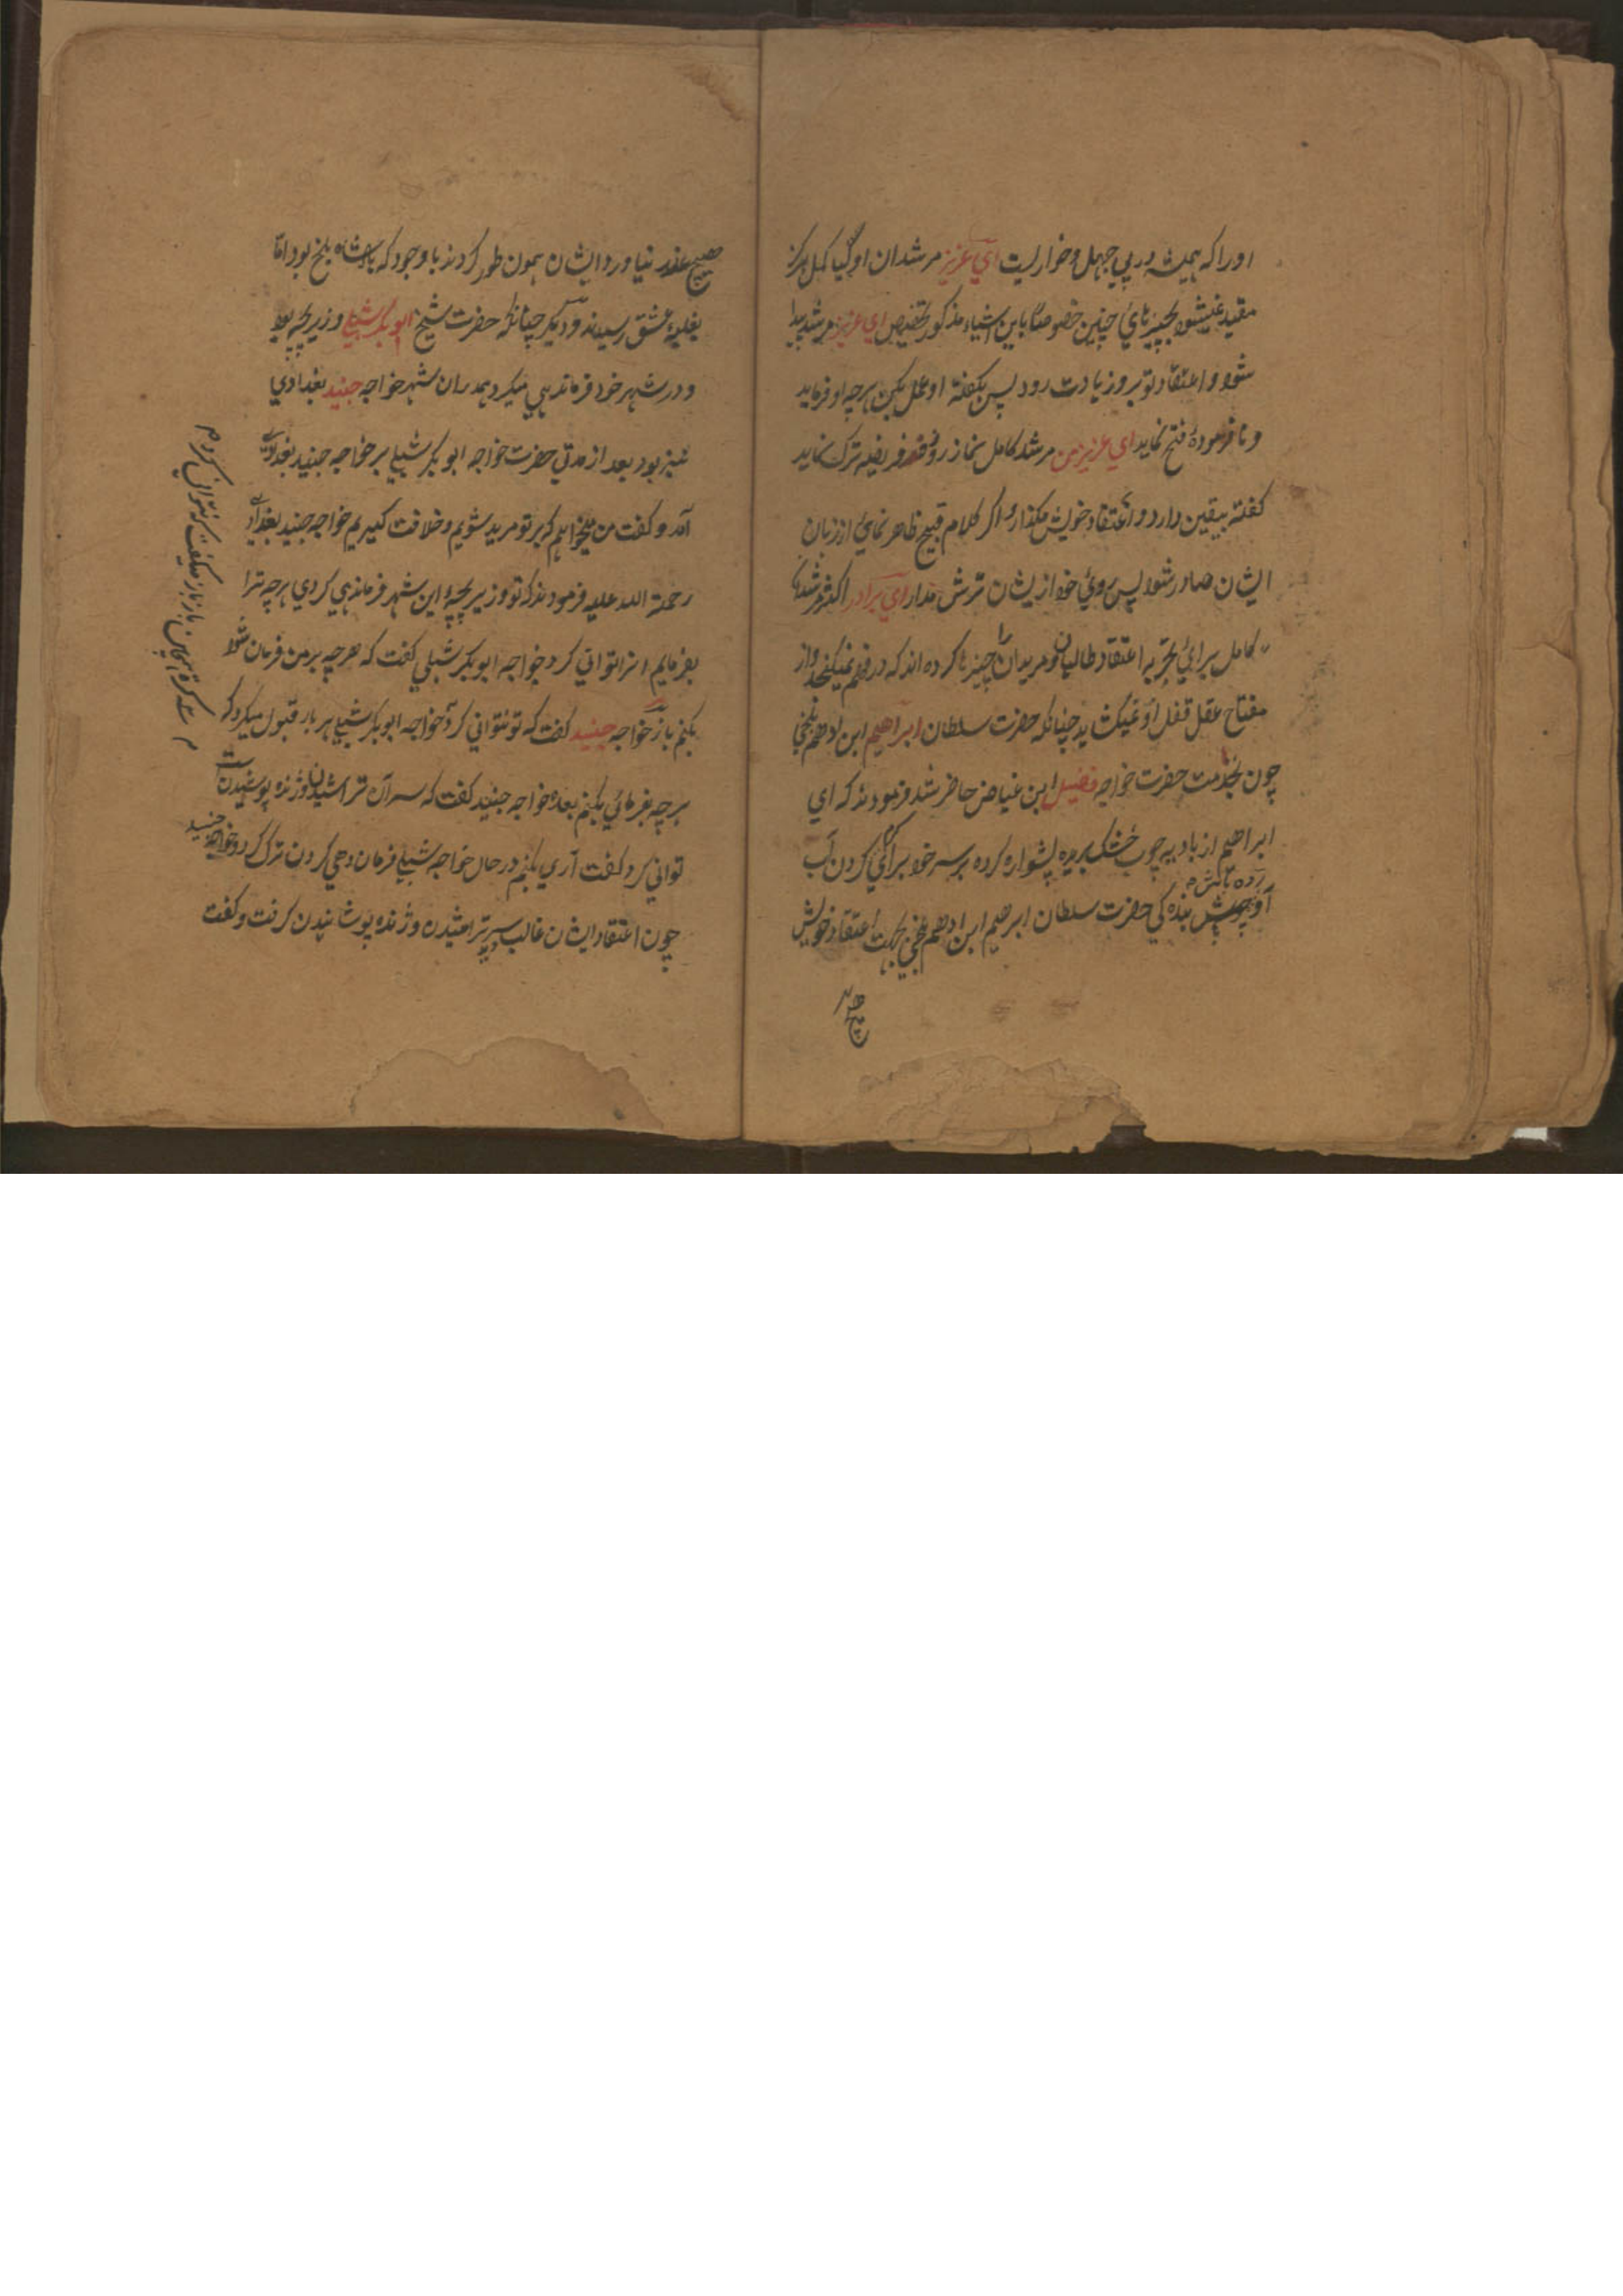 اورا که همیشه در پی جهل و خواریست ای عزیز مرشدان او کیا کمل هرکز
مقید نمیشود بچیزهائ چنین خصوصًا باین اشیاء مذکور تخصیص ای عزیز مرشد پیدا
شود و اعتقاد تو بروز یادت رود پس بکفته او عمل بکن هرچه او فرماید
و نافرموده فتح نماید ای عزیز من مرشد کامل نماز روزه فریضه ترک نماید
کفته بیقین دارد و اعتقاد خویش مکذار و اکر کلام قبیح ظاهر نمائ از زبان
ایشان صادر شود پس روئ خود ازیشان ترش مدار ای برادر اکثر مرشدها
کامل برائ تجربه اعتقاد طالبان و مریدان را چیزها کرده اند که در فهم نمیکنجد و از
مفتاح عقل قفل او نمیکشاید چنانکه حضرت سلطان ابراهیم ابن ادهم بلخی
چون بخدمت حضرت خواجه فضیل ابن عیاض حاضر شد فرمودند که ای
ابراهیم از بادیه چوب خشک بریده پشواره کرده بر سر خود برائ کرم کردن آب
آوبچش بنده کی حضرت سلطان ابرهیم ابن ادهم بلخی بجهت اعتقاد خویش
هیچ عذر
هیچ عذر نیاوردوایشان همون طور کردند با وجود که پادشاه بلخ بود امّا
بغلبهٔ عشق رسیدند و دیکر چنانکه حضرت شیخ ابو بکر شبلی وزیر بچه بود
و در شهر خود فرماندهی میکرد بهدران شهر خواجه جنید بغدادی
نیز بود بعد از مدتی حضرت خواجه ابو بکر شبلی بر خواجه جنید بغدادی
آمد و کفت من میخواهم که بر تو مرید شویم و خلافت کیریم خواجه جنید بغدادی
رحمة الله علیه فرمودند که تو وزیر بچه این شهر فرماندهی کردی هرچه ترا
بفرمایم انرا توانی کرد خواجه ابو بکر شبلی کفت که هرچه بر من فرمان شود
بکنم باز خواجه جنید کفت که تو نتوانی کرد خواجه ابو بکر شبلی هر بار قبول میکرد که
هرچه بفرمائی بکنم بعده خواجه جنید کفت که سر آن تراشیدن و ژنده پوشیدن
توانی کرد کفت آری بکنم در حال خواجه شبلی فرمان دهی کردن ترک کرد و خواجه جنید
چون اعتقاد ایشان غالب دید سر تراشیدن و ژنده پوشانیدن کرفت و کفت
باز باز میکفت که نتوانی کرد م